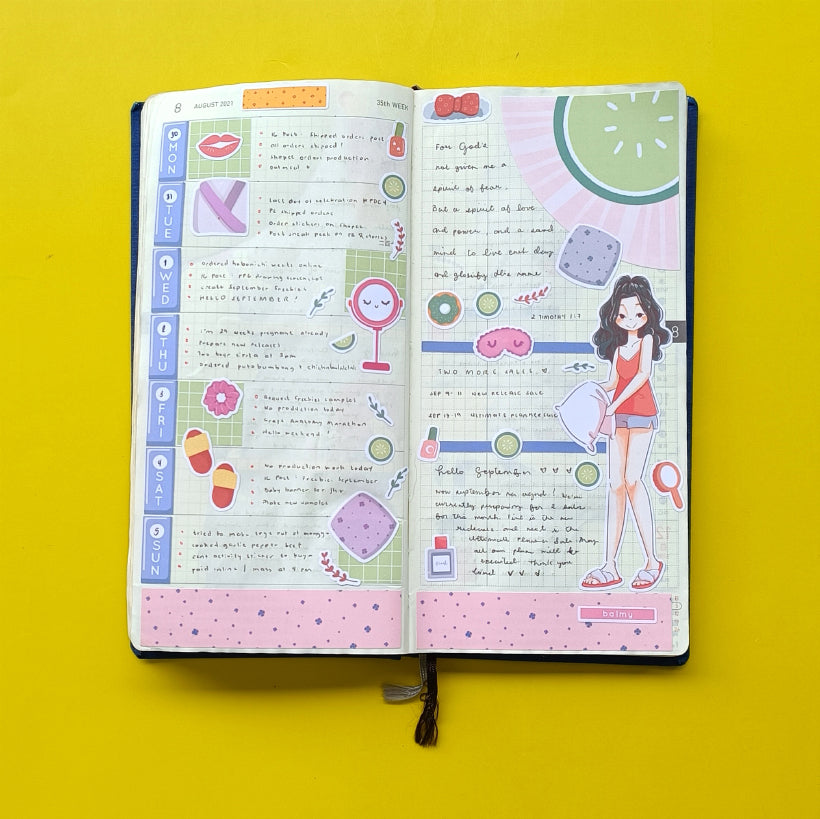 8 AUGUST 2021
35th WEEK
30
MON
IG Post - Shipped orders post
All orders shipped!
Shopee orders production
Oatmeal
31
TUE
Last day of celebration
PL shipped orders
Order stickers on Shopee
Post sneak peek on FB & stories
1
WED
Ordered hobonichi weeks online
IG Post - PPL drawing
Create September Freebies
HELLO SEPTEMBER!
2
THU
I'm 29 weeks pregnant already
Prepare new releases
at 3pm
Ordered puto bumbong +
3
FRI
Request freebies samples
No production today
Grey's Anatomy Marathon
Hello weekend!
4
SAT
No production work today
IG Post: Freebie September
Baby banner for
Make new samples
5
SUN
tried to make
cooked garlic pepper beef
sent activity sticker to buyer
paid online / mass at 4 pm
For God's
not given me a
spirit of fear.
But a spirit of love
and power, and a sound
mind to live each day
and glorify the name
2 TIMOTHY 1:7
8
TWO MORE SALES
SEP 9-11 NEW RELEASE SALE
SEP 17-19 ULTIMATE PLANNER SALE
hello September
Now september na agad! We're
currently preparing for 2 sales
for the month. First is the new
release and next is the
ultimate Planner Sale. May
all our plans will be
executed. Thank you
Lord!
balmy